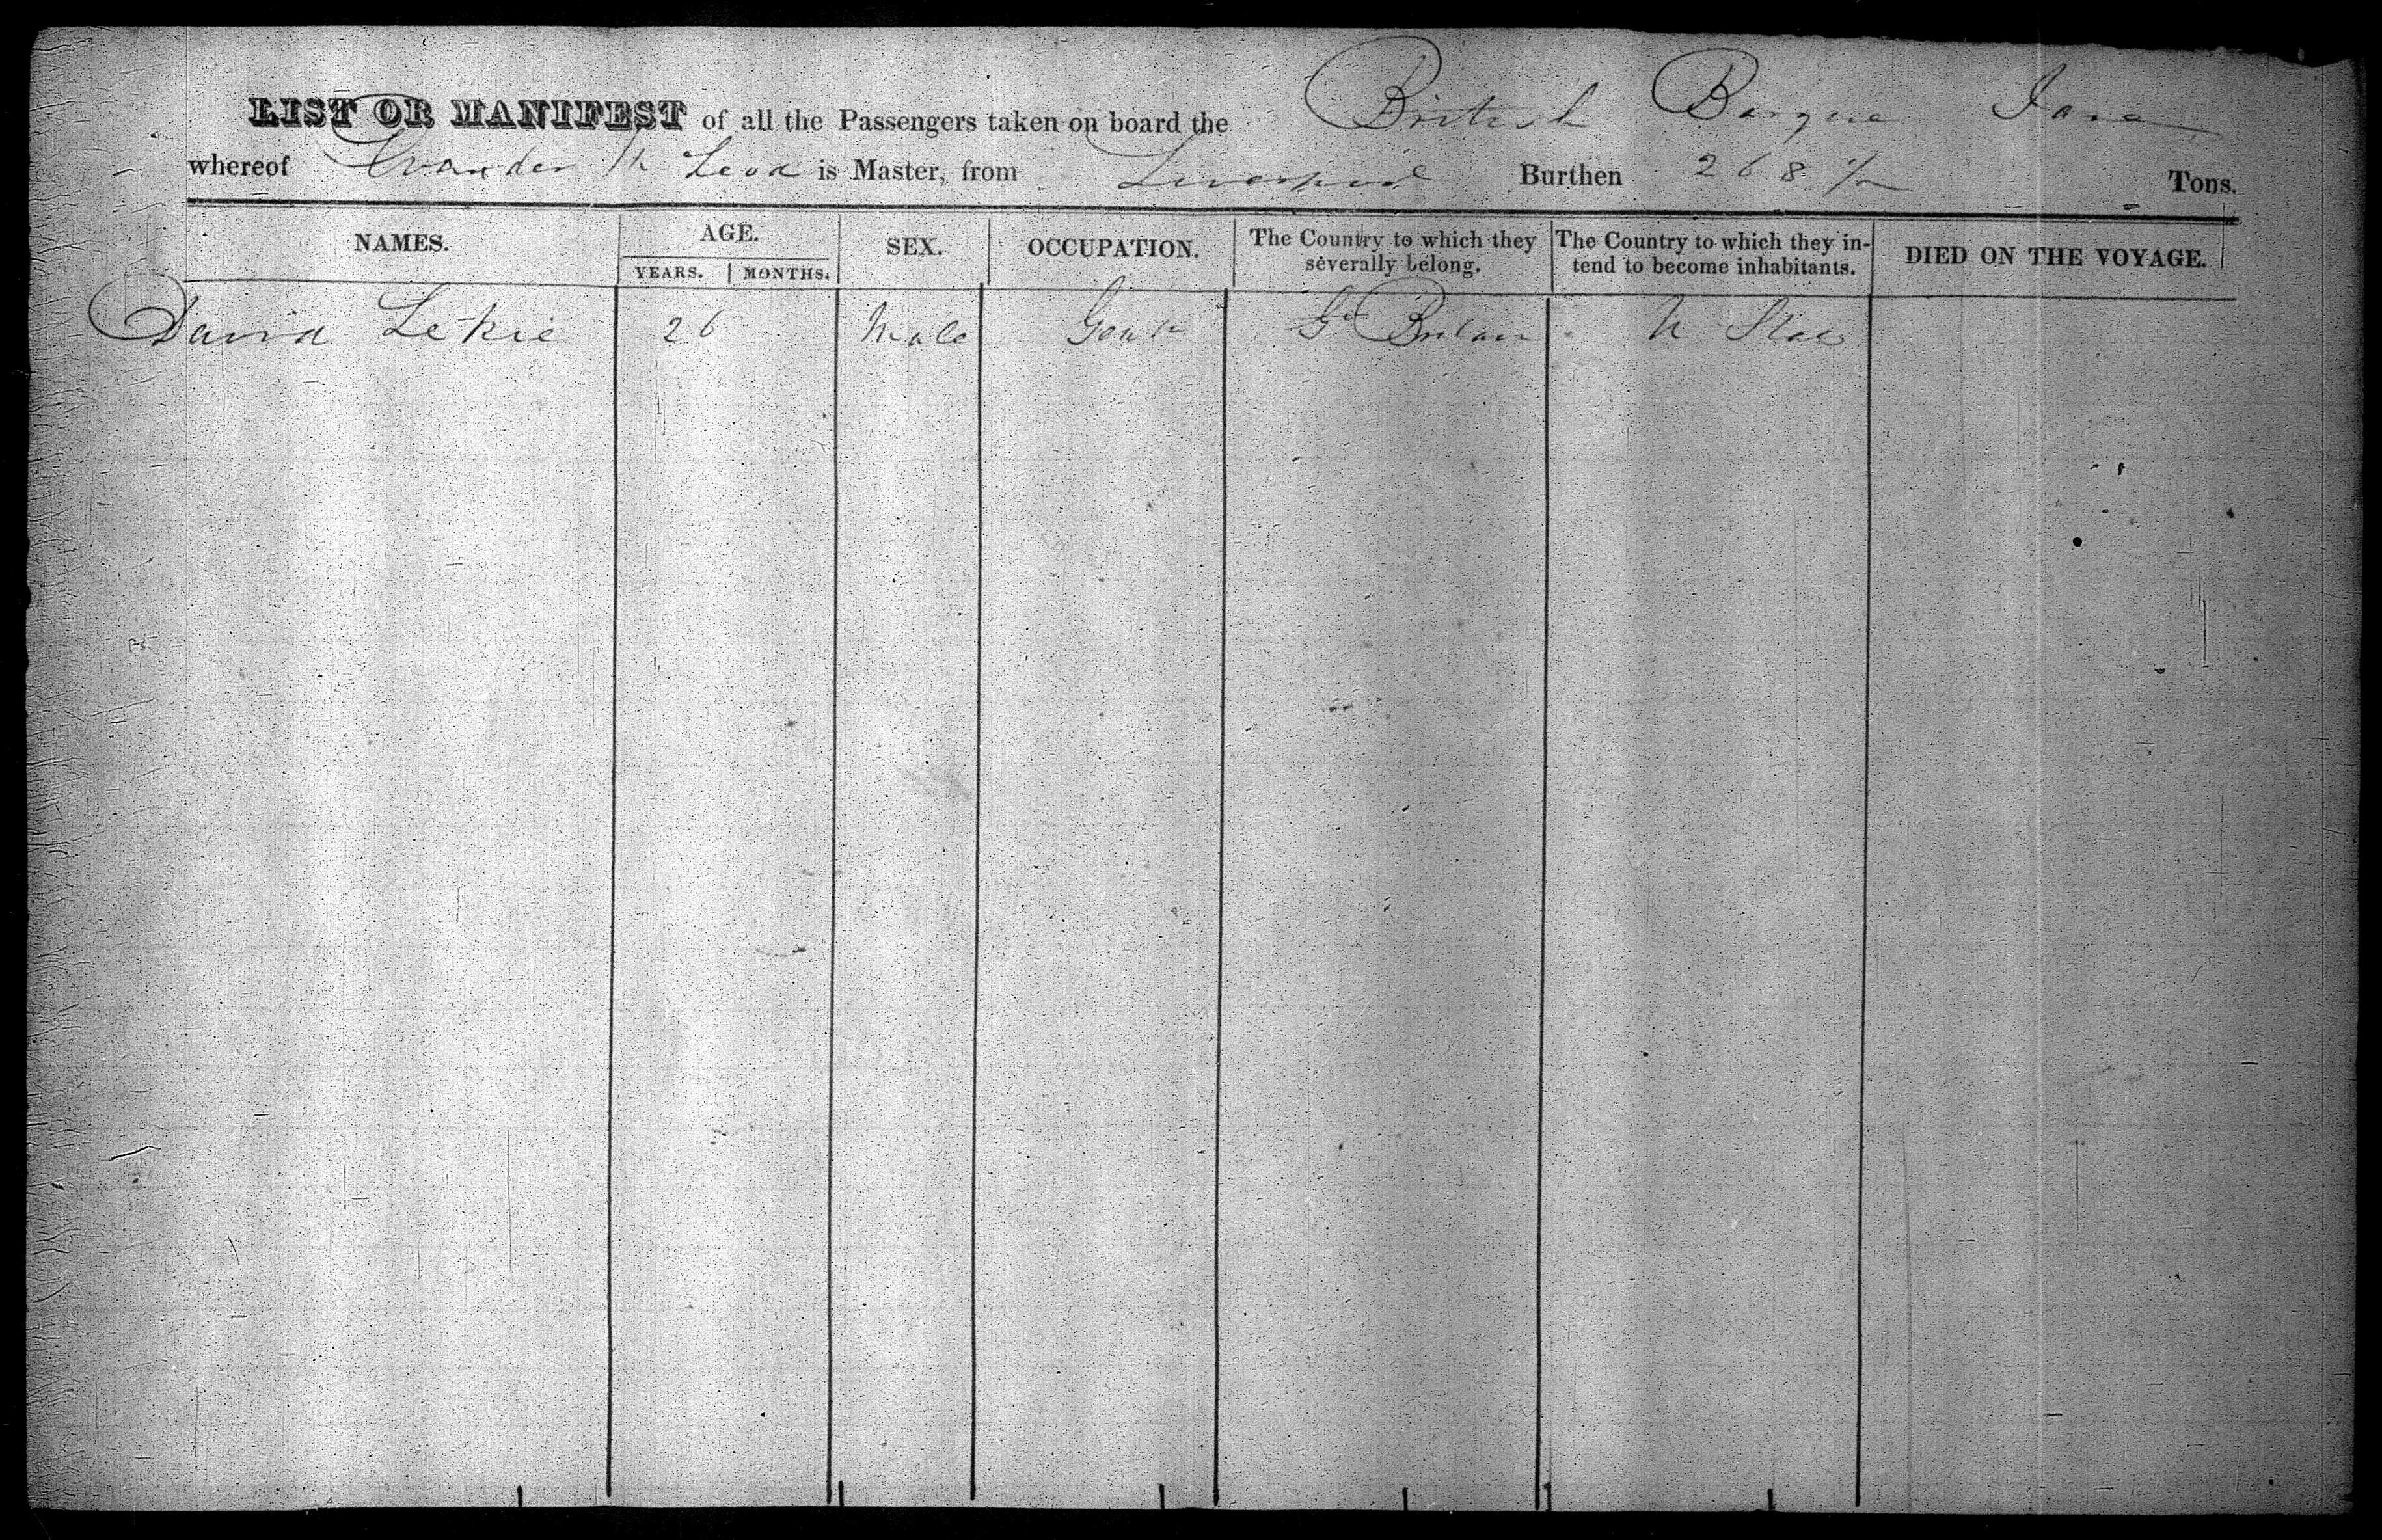 LIST OR MANIFEST of all the Passengers taken on board the British Barque Jane
whereof Evander Mc Leod is Master, from Liverpool Burthen 268 1/2 Tons.
NAMES. AGE. SEX. OCCUPATION. The Country to which they severally belong. The Country to which they in-tend to become inhabitants. DIED ON THE VOYAGE.
YEARS. MONTHS.
David Lekie 26 Male Gt Britain U States